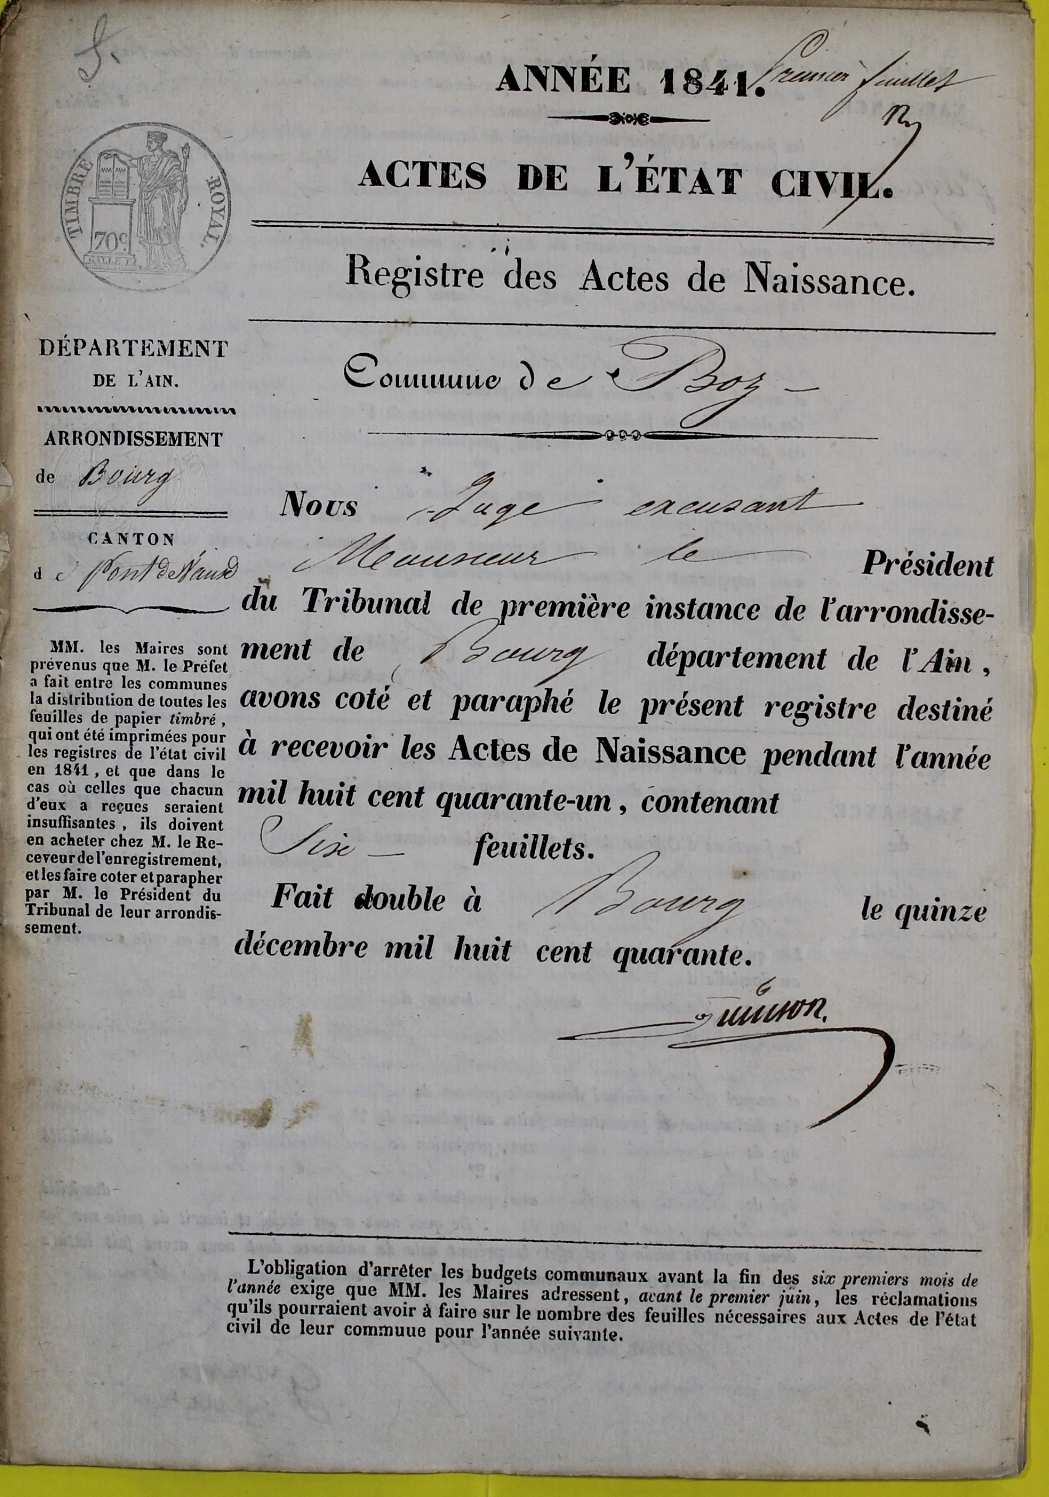 S.
Premier feuillet
ANNÉE 1841.
ACTES DE L'ÉTAT CIVIL.
TIMBRE ROYAL.
70c
Registre des Actes de Naissance.
DÉPARTEMENT
DE L'AIN.
ARRONDISSEMENT
de Bourg
CANTON
de Pont de Vaux
MM. les Maires sont
prévenus que M. le Préfet
a fait entre les communes
la distribution de toutes les
feuilles de papier timbré,
qui ont été imprimées pour
les registres de l'état civil
en 1841, et que dans le
cas où celles que chacun
d'eux a reçues seraient
insuffisantes, ils doivent
en acheter chez M. le Re-
ceveur de l'enregistrement,
et les faire coter et parapher
par M. le Président du
Tribunal de leur arrondis-
sement.
Commune de Boz
Nous Juge excusant
Monsieur le Président
du Tribunal de première instance de l'arrondisse-
ment de Bourg département de l'Ain,
avons coté et paraphé le présent registre destiné
à recevoir les Actes de Naissance pendant l'année
mil huit cent quarante-un, contenant
Six feuillets.
Fait double à Bourg le quinze
décembre mil huit cent quarante.
L'obligation d'arrêter les budgets communaux avant la fin des six premiers mois de
l'année exige que MM. les Maires adressent, avant le premier juin, les réclamations
qu'ils pourraient avoir à faire sur le nombre des feuilles nécessaires aux Actes de l'état
civil de leur commune pour l'année suivante.